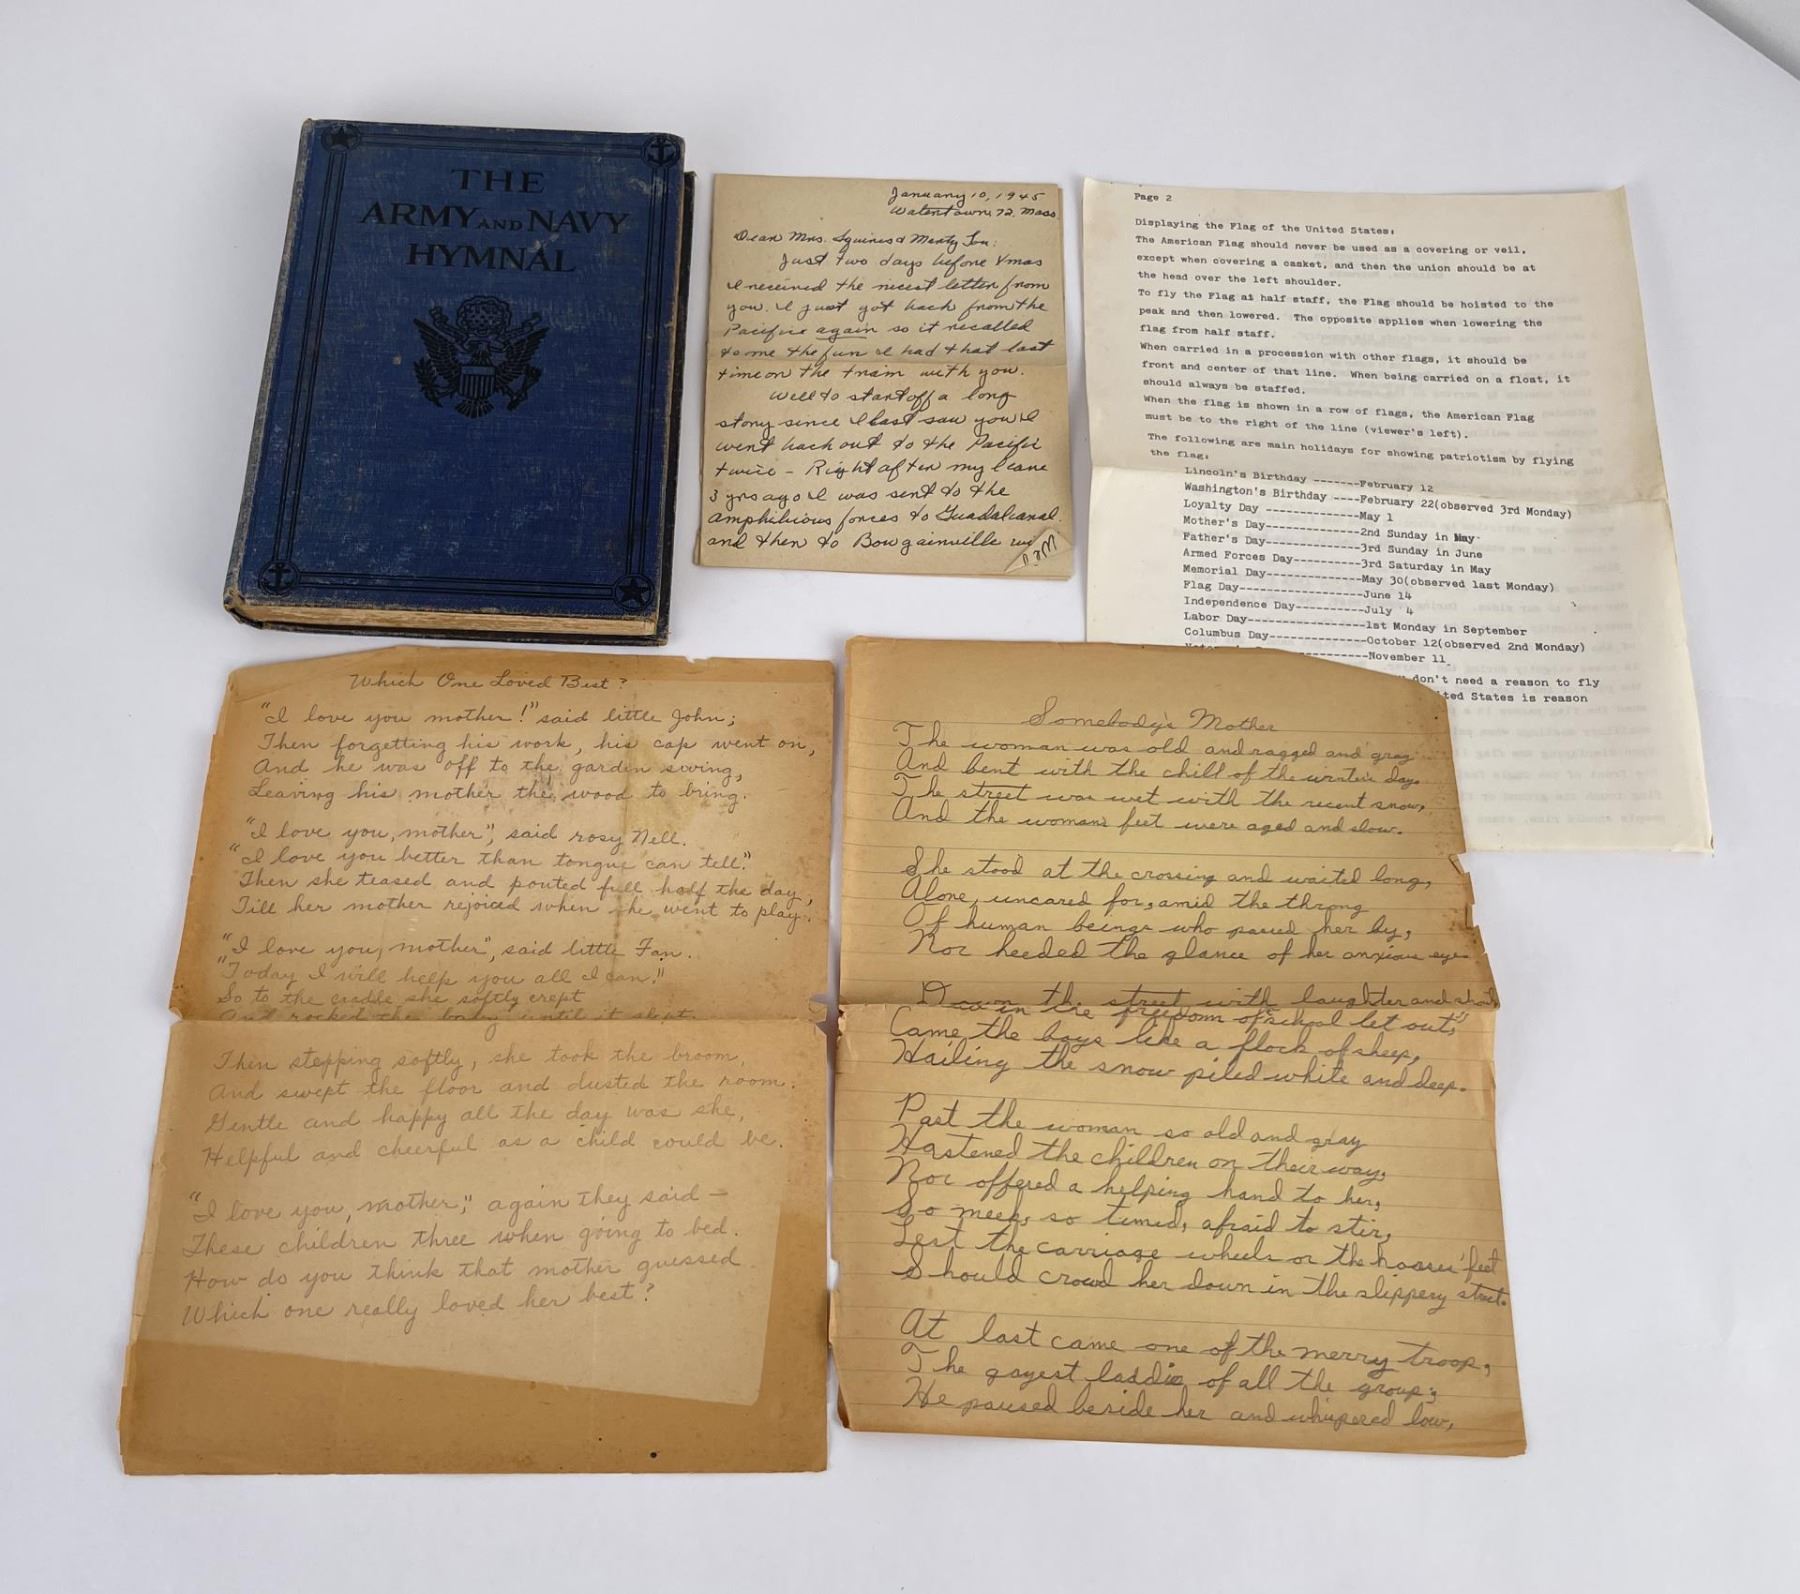 THE
ARMY AND NAVY
HYMNAL
January 10, 1945
Watertown, 72, Mass.
Dear Mrs. Squires & Marty Lou:
Just two days before Xmas
I received the nicest letter from
you. I just got back from the
Pacific again so it recalled
to me the fun I had that last
time on the train with you.
Well to start off a long
story since I last saw you I
went back out to the Pacific
twice - Right after my leave
3 yrs ago I was sent to the
amphibious forces to Guadalcanal
and then to Bougainville
Page 2
Displaying the Flag of the United States:
The American Flag should never be used as a covering or veil,
except when covering a casket, and then the union should be at
the head over the left shoulder.
To fly the Flag at half staff, the Flag should be hoisted to the
peak and then lowered. The opposite applies when lowering the
flag from half staff.
When carried in a procession with other flags, it should be
front and center of that line. When being carried on a float, it
should always be staffed.
When the flag is shown in a row of flags, the American Flag
must be to the right of the line (viewer's left).
The following are main holidays for showing patriotism by flying
the flag:
Lincoln's Birthday -------February 12
Washington's Birthday ----February 22(observed 3rd Monday)
Loyalty Day --------------May 1
Mother's Day--------------2nd Sunday in May
Father's Day--------------3rd Sunday in June
Armed Forces Day----------3rd Saturday in May
Memorial Day--------------May 30(observed last Monday)
Flag Day------------------June 14
Independence Day----------July 4
Labor Day-----------------1st Monday in September
Columbus Day--------------October 12(observed 2nd Monday)
--------November 11
don't need a reason to fly
ited States is reason
Which One Loved Best?
"I love you mother!" said little John;
Then forgetting his work, his cap went on,
And he was off to the garden swing,
Leaving his mother the wood to bring.
"I love you, mother", said rosy Nell.
"I love you better than tongue can tell."
Then she teased and pouted full half the day,
Till her mother rejoiced when she went to play.
"I love you, mother", said little Fan.
"Today I will help you all I can."
So to the cradle she softly crept
And rocked the baby until it slept.
Then stepping softly, she took the broom,
And swept the floor and dusted the room.
Gentle and happy all the day was she,
Helpful and cheerful as a child could be.
"I love you, mother," again they said —
These children three when going to bed.
How do you think that mother guessed
Which one really loved her best?
Somebody's Mother
The woman was old and ragged and gray
And bent with the chill of the winter's day.
The street was wet with the recent snow,
And the woman's feet were aged and slow.
She stood at the crossing and waited long,
Alone, uncared for, amid the throng
Of human beings who passed her by,
Nor heeded the glance of her anxious eye.
Down the street with laughter and shout
in the freedom of "school let out,"
Came the boys like a flock of sheep,
Hailing the snow piled white and deep.
Past the woman so old and gray
Hastened the children on their way,
Nor offered a helping hand to her,
So meek, so timid, afraid to stir,
Lest the carriage wheels or the horses' feet
Should crowd her down in the slippery street.
At last came one of the merry troop,
The gayest laddie of all the group;
He paused beside her and whispered low,